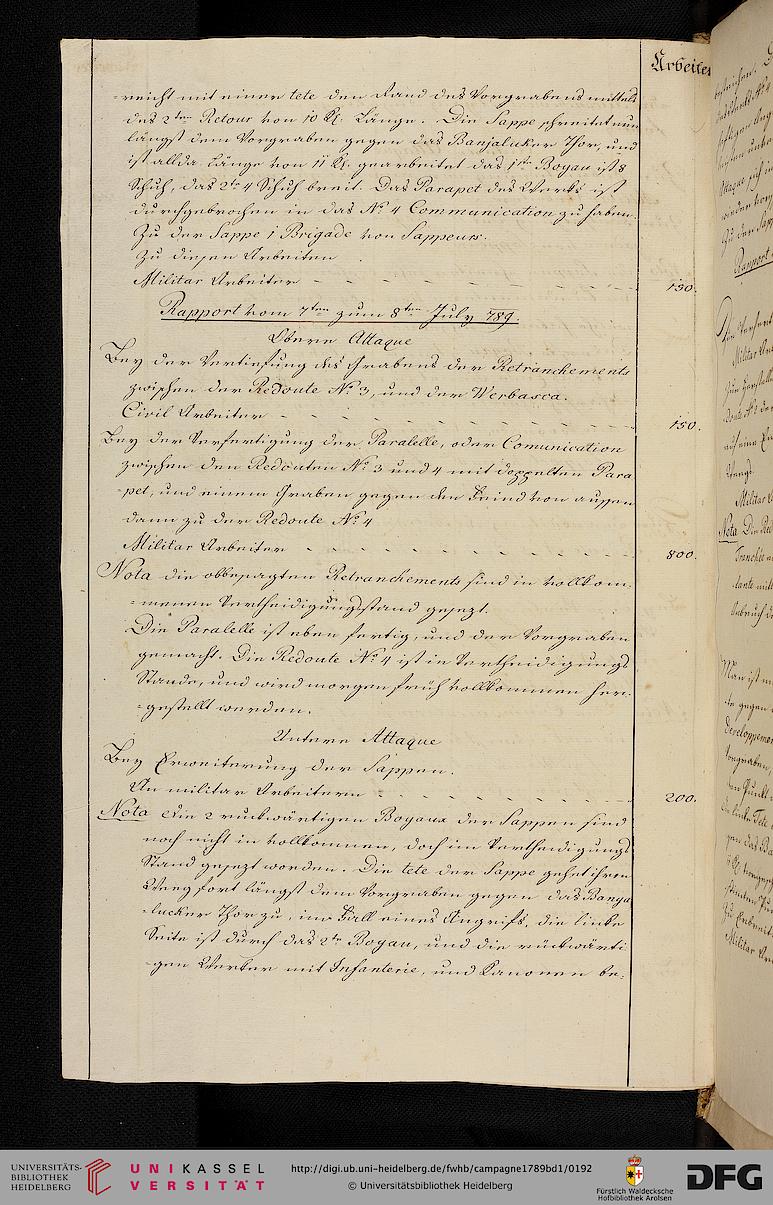 Arbeiter
=reicht mit einer tete den Rand des Vorgrabens mittels
des 2ten Retour von 10 Kl. Länge. Die Sappe schreitet nun
längst dem Vorgraben gegen das Banjalucker Thor, und
ist allda Länge von 11 Kl. gearbeitet das 1te Boyau ist 8
Schuh, das 2te 4 Schuh breit. Das Parapet des Wercks ist
durchgebrochen in das No. 4 Communication zu haben.
Zu der Sappe 1 Brigade von Sappeurs.
Zu diesen Arbeiten
Militar Arbeiter - - - - - - - - - - 130.
Rapport vom 7ten zum 8ten July 789.
Obere Attaque
Bey der Vertiefung des Grabens der Retranchements
zwischen der Redoute No. 3, und der Werbasca.
Civil Arbeiter - - - - - - - - - - 150.
Bey der Verfertigung der Paralelle, oder Comunication
zwischen den Redouten No. 3 und 4 mit doppelten Para
-pet, und einem Graben gegen den Feind von aussen
dann zu der Redoute No. 4
Militar Arbeiter - - - - - - - - - - 800.
Nota die obbesagten Retranchements sind in vollkom:
=menen Vertheidigungsstand gesezt.
Die Paralelle ist eben fertig, und der Vorgraben
gemacht. Die Redoute No. 4 ist in Vertheidigungs
Stande, und wird morgen früh vollkommen her:
=gestellt werden.
Untere Attaque
Bey Erweiterung der Sappen.
An militar Arbeitern - - - - - - - - - 200.
Nota Die 2 ruckwärtigen Boyaux der Sappen sind
noch nicht in vollkommen, doch im Vertheidigungs
Stand gesezt worden. Die tete der Sappe gehet ihren
Weeg fort längst dem Vorgraben gegen das Banja
-lucker Thor zu, im Fall eines Angrifs, die linke
Seite ist durch das 2te Boyau, und die rückwärti
-gen Werker mit Infanterie, und Kanonen be:
UNIVERSITÄTS-
BIBLIOTHEK
HEIDELBERG
UNIKASSEL
VERSITÄT
http://digi.ub.uni-heidelberg.de/fwhb/campagne1789bd1/0192
© Universitätsbibliothek Heidelberg
Fürstlich Waldecksche
Hofbibliothek Arolsen
DFG